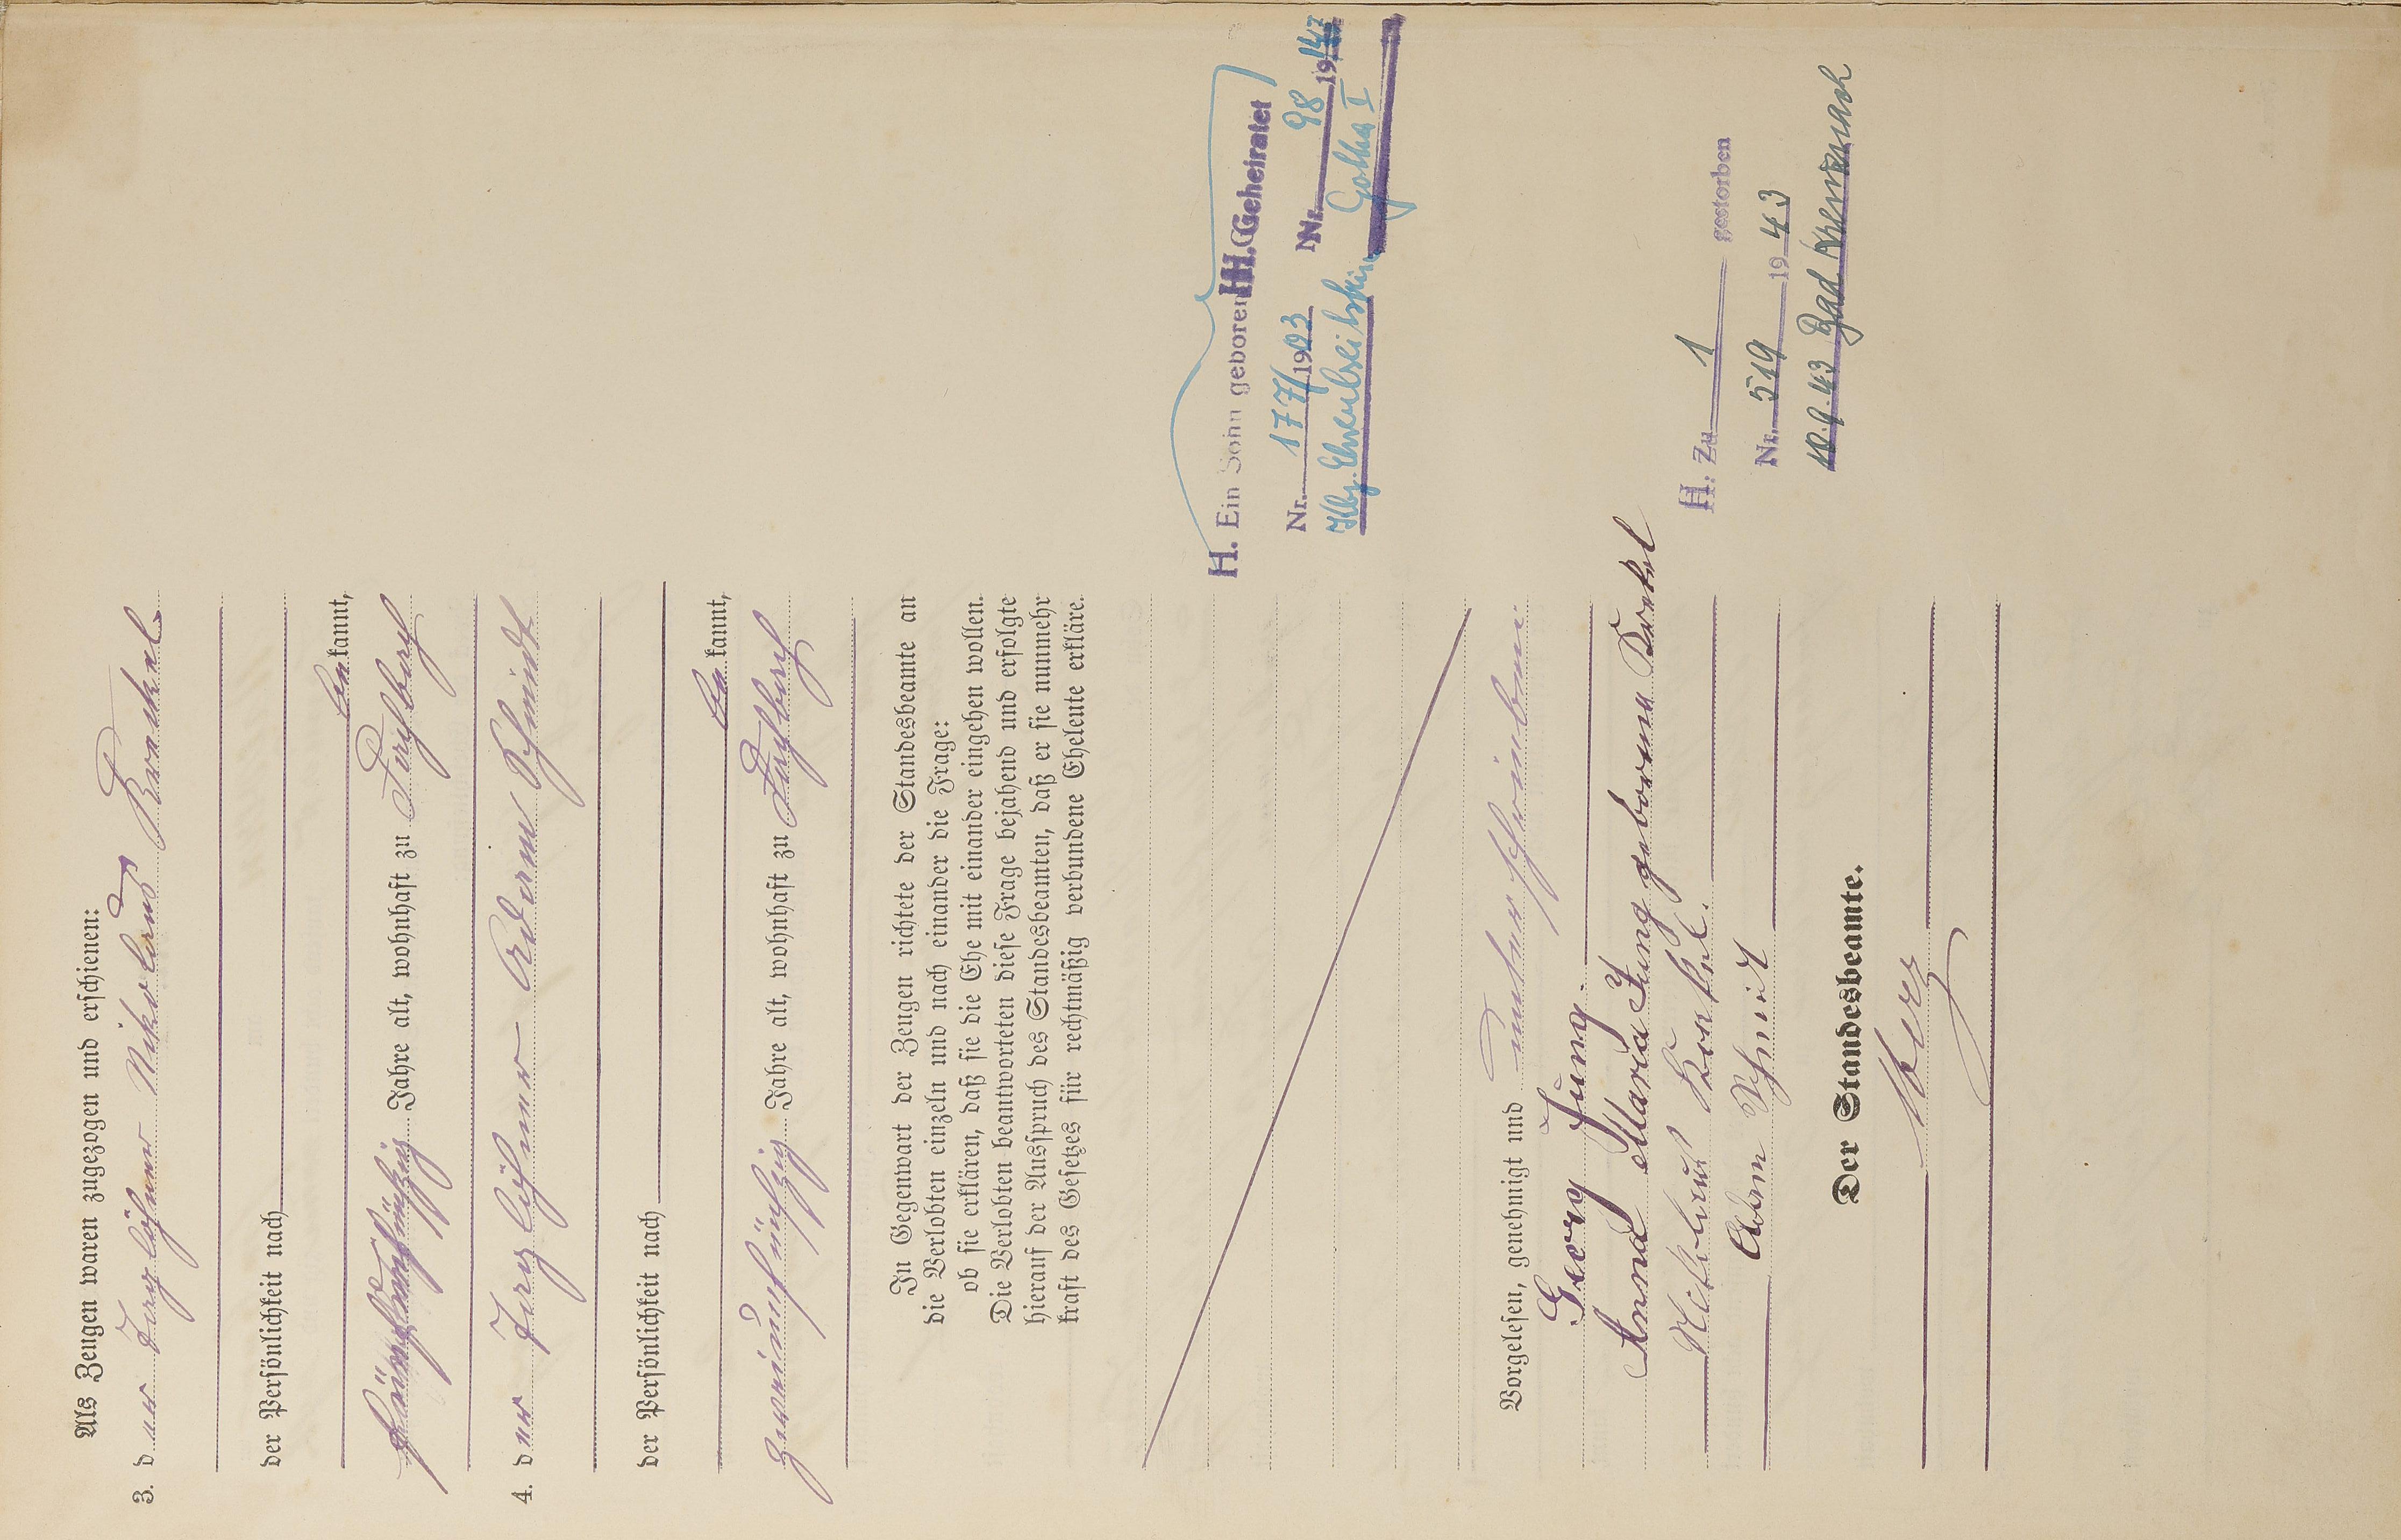 Als Zeugen waren zugezogen und erschienen:
3. der Tagelöhner Nikolaus Krenkel
der Persönlichkeit nach
bekannt,
fünfundfünfzig Jahre alt, wohnhaft zu
4. der Tagelöhner Adam Schmidt
der Persönlichkeit nach
bekannt,
zweiundfünfzig Jahre alt, wohnhaft zu
In Gegenwart der Zeugen richtete der Standesbeamte an
die Verlobten einzeln und nach einander die Frage:
ob sie erklären, daß sie die Ehe mit einander eingehen wollen.
Die Verlobten beantworteten diese Frage bejahend und erfolgte
hierauf der Ausspruch des Standesbeamten, daß er sie nunmehr
kraft des Gesetzes für rechtmäßig verbundene Eheleute erkläre.
Vorgelesen, genehmigt und unterschrieben:
Georg Jung.
Anna Maria Jung geborene Krenkel
Nikolaus Krenkel.
Adam Schmidt
Der Standesbeamte.
H. Ein Sohn geboren
Nr. 177/1903
H. Geheiratet
Nr. 98 1947
Gotha I
H. Zu 1 gestorben
Nr. 519 1943
18.9.43 Bad Kreuznach